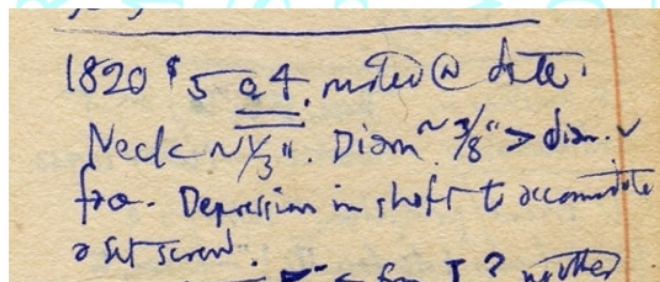 1820 $5 a4. muted @ date.
Neck ~ 1/3". Diam ~ 3/8" > diam. ✓
fra. Depression in shaft to accomodate
a set screw.
for I ?